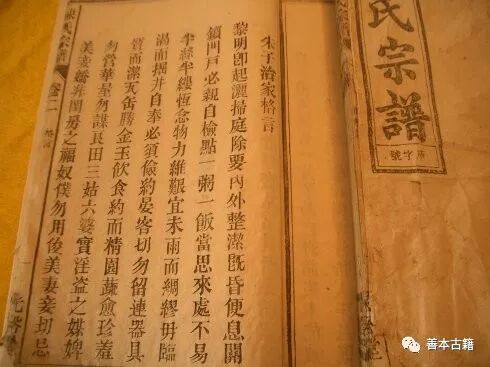 氏宗譜
朱子治家格言
黎明卽起灑掃庭除要內外整潔旣昏便息關
鎖門戶必親自檢點一粥一飯當思來處不易
半絲半縷恆念物力維艱宜未雨而綢繆毋臨
渴而掘井自奉必須儉約宴客切勿留連器具
質而潔瓦缶勝金玉飲食約而精園蔬愈珍羞
勿營華屋勿謀良田三姑六婆實淫盜之媒婢
美妾嬌非閨房之福奴僕勿用俊美妻妾切忌
氏宗譜 卷二
善本古籍